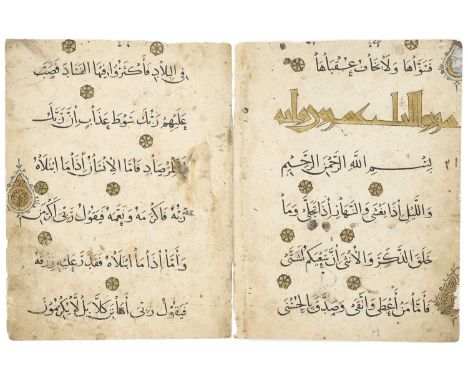 فَسَوَّاهَا وَلَا يَخَافُ عُقْبَاهَا
سورة والليل عشرون وايه
بِسْمِ اللَّهِ الرَّحْمَنِ الرَّحِيمِ
وَاللَّيْلِ إِذَا يَغْشَى وَالنَّهَارِ إِذَا تَجَلَّى وَمَا
خَلَقَ الذَّكَرَ وَالْأُنْثَى إِنَّ سَعْيَكُمْ لَشَتَّى
فَأَمَّا مَنْ أَعْطَى وَاتَّقَى وَصَدَّقَ بِالْحُسْنَى
فِي الْبِلَادِ فَأَكْثَرُوا فِيهَا الْفَسَادَ فَصَبَّ
عَلَيْهِمْ رَبُّكَ سَوْطَ عَذَابٍ إِنَّ رَبَّكَ
لَبِالْمِرْصَادِ فَأَمَّا الْإِنْسَانُ إِذَا مَا ابْتَلَاهُ
رَبُّهُ فَأَكْرَمَهُ وَنَعَّمَهُ فَيَقُولُ رَبِّي أَكْرَمَنِ
وَأَمَّا إِذَا مَا ابْتَلَاهُ فَقَدَرَ عَلَيْهِ رِزْقَهُ
فَيَقُولُ رَبِّي أَهَانَنِ كَلَّا بَلْ لَا يُكْرِمُونَ